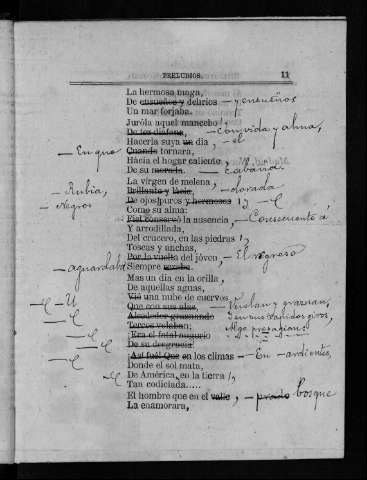 PRELUDIOS. 11
La hermosa maga,
De ensueños y delirios – y ensueños
Un mar forjaba.
Juróla aquel mancebo
De los – Con vida y alma,
Hacerla suya un dia, – el
– En que Cuando tornara,
Hácia el hogar caliente,
De su morada. – cabaña.
La vírgen de melena,
– Rubia, Brillante y lácia, – dorada
– Negros De ojos puros y hermosos
Como su alma:
Fiel conservó la ausencia, – Consecuente a
Y arrodillada,
Del crucero, en las piedras
Toscas y anchas,
Por la vuelta del jóven, – El regreso
– aguardaba Siempre rezaba.
Mas un dia en la orilla,
De aquellas aguas,
Vió una nube de cuervos
Que con sus alas, – Venian y graznan,
Alrededor graznando
Tercos volaban;
Era el fatal augurio
De su desgracia.
Así fué! Que en los climas – En ardientes,
Donde el sol mata,
De América, en la tierra
Tan codiciada.....
El hombre que en el valle, – prado bosque
La enamorara,